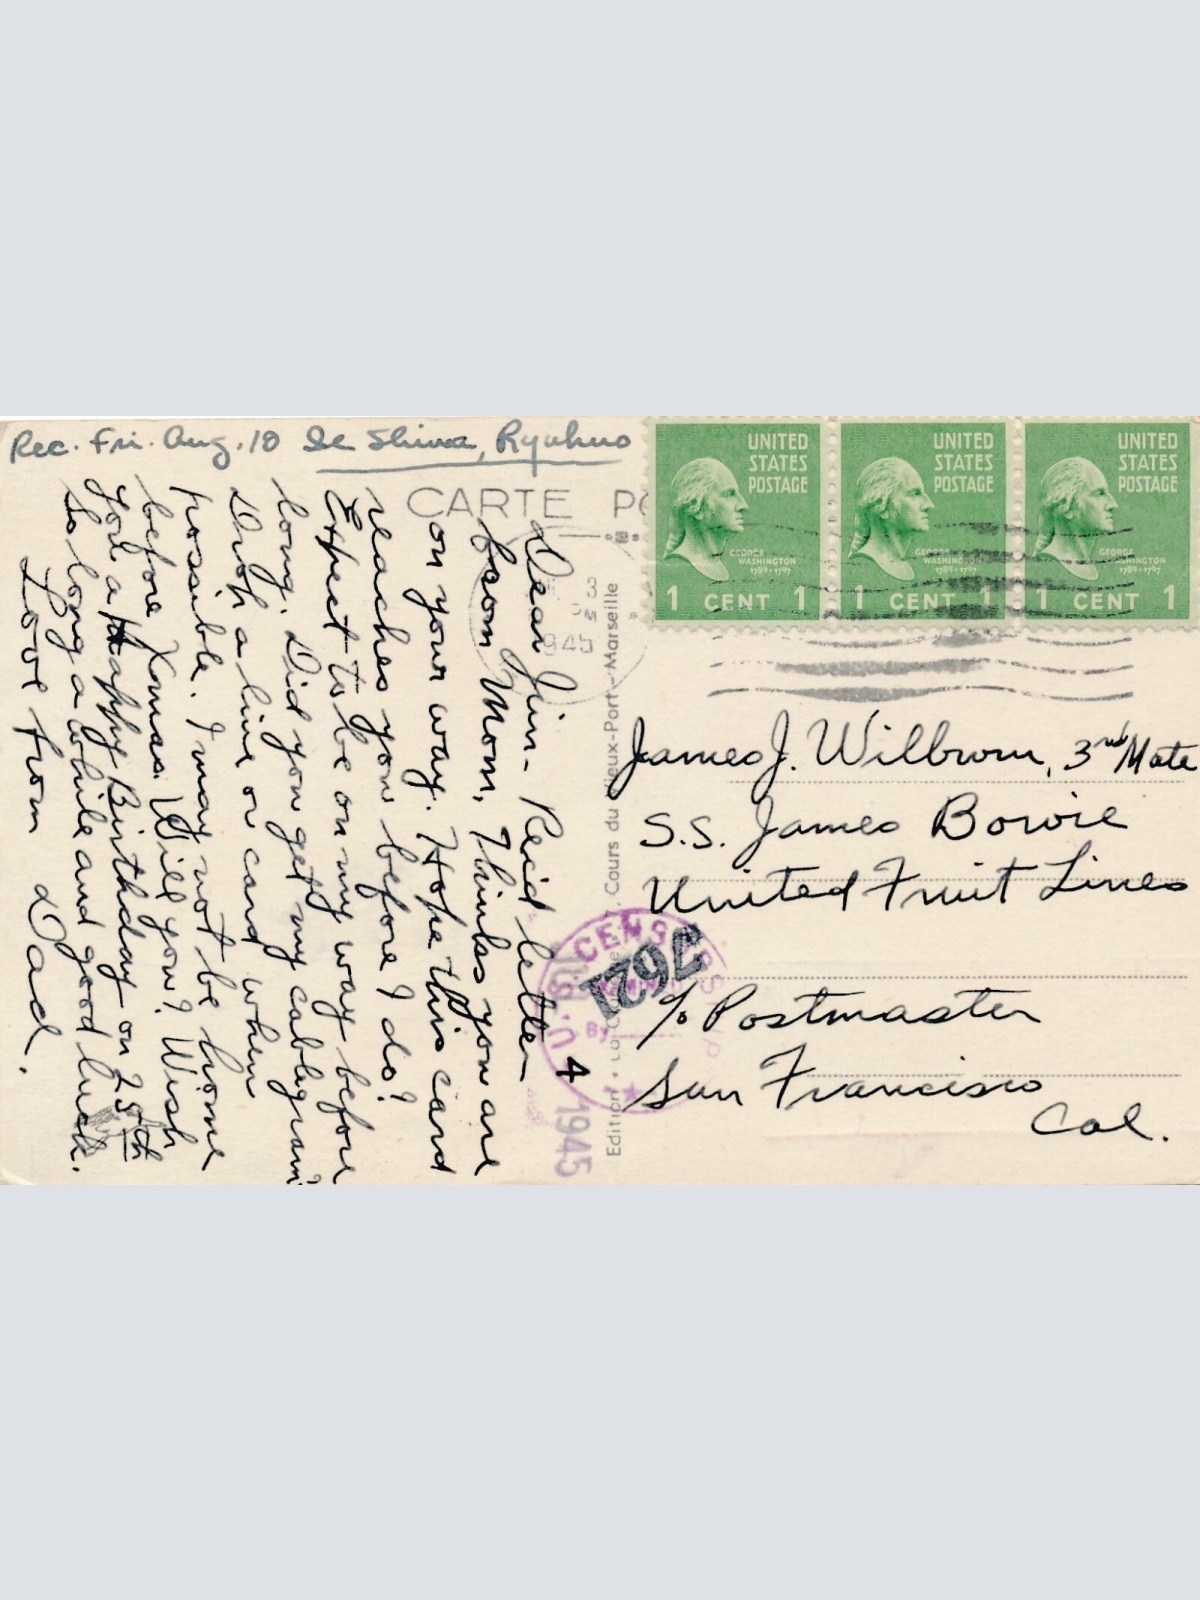 Rec. Fri. Aug. 10 Ie Shima, Ryukus
CARTE PO
UNITED
STATES
POSTAGE
GEORGE
WASHINGTON
1789-1797
1 CENT 1
UNITED
STATES
POSTAGE
GEORGE
WASHINGTON
1789-1797
1 CENT 1
UNITED
STATES
POSTAGE
GEORGE
WASHINGTON
1789-1797
1 CENT 1
3
PM
1945
Dear Jim - Rec'd letter
from Mom, Thinks you are
on your way. Hope this card
reaches you before I do?
Expect to be on my way before
long. Did you get my cablegram?
Drop a line or card when
possible. I may not be home
before Xmas. Will you? Wish
you a Happy Birthday on 25th
So long a while and good luck.
Love from Dad.
Edition Cours du Vieux-Port-Marseille
James J. Wilbrum, 3rd Mate
S.S. James Bowie
United Fruit Lines
c/o Postmaster
San Francisco
Cal.
U.S. CENSORSHIP
EXAMINED
By
7621
4 1945